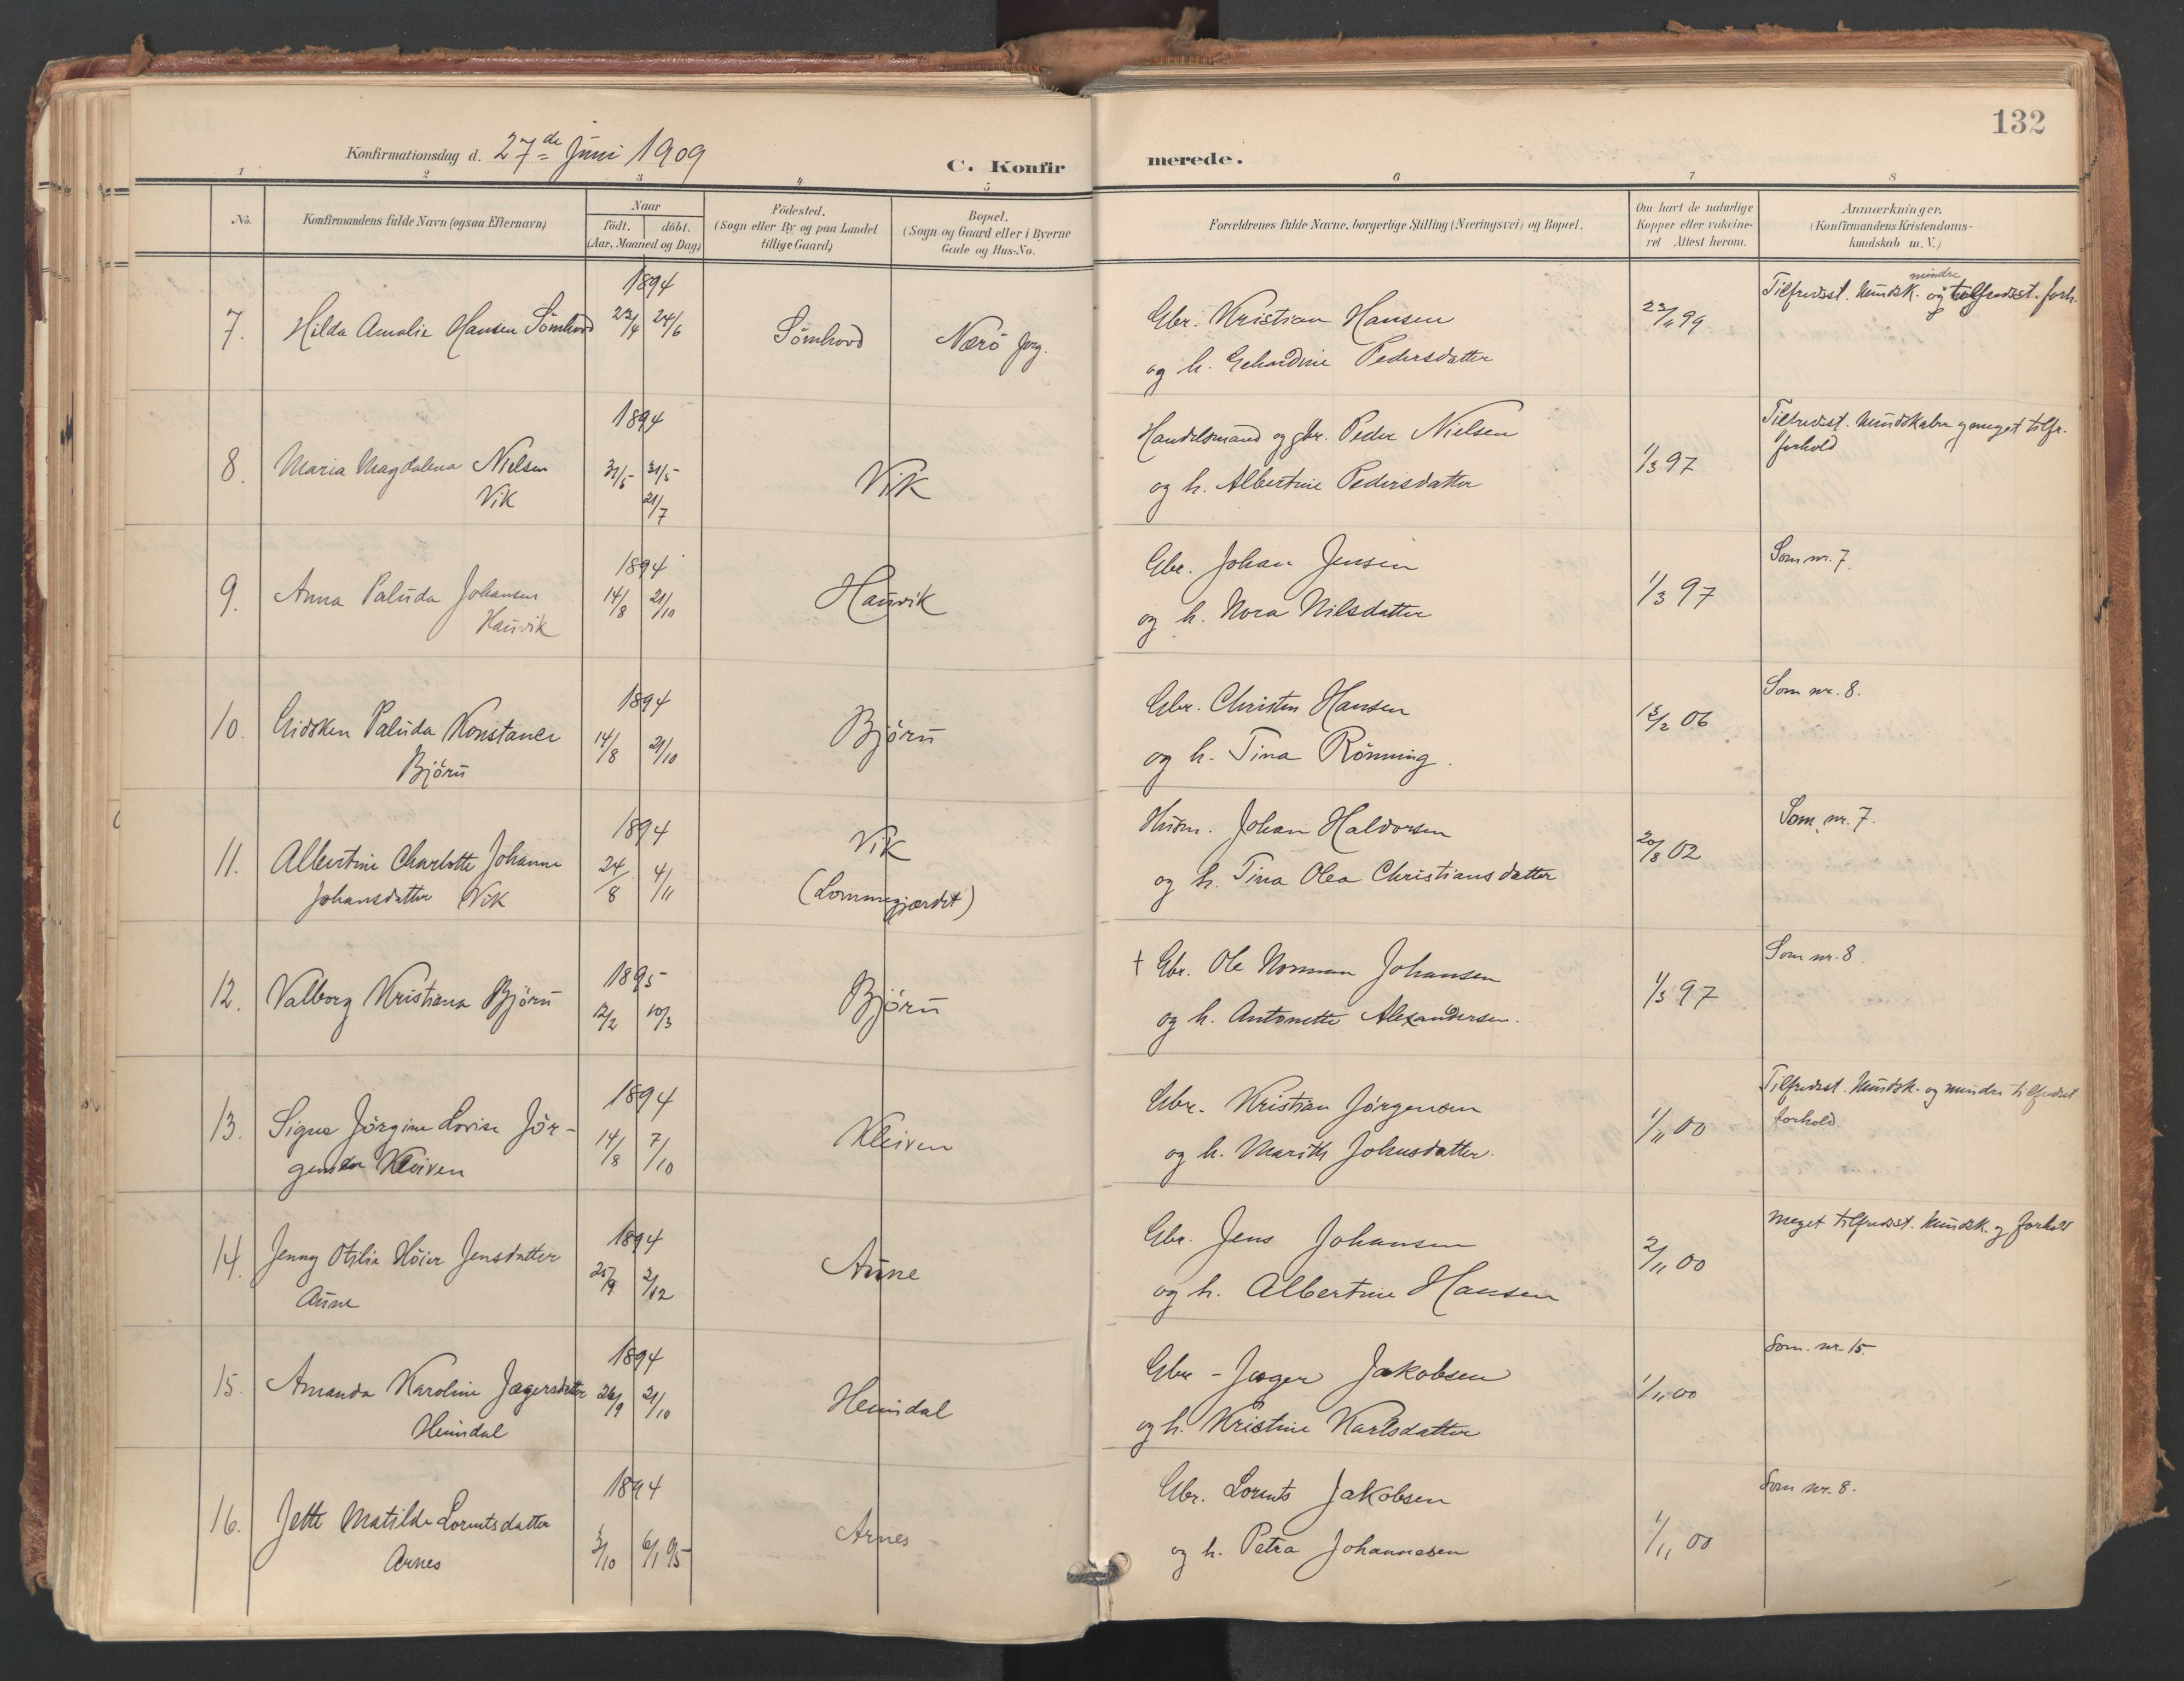 132
Konfirmationsdag d. 27de Juni 1909
C. Konfirmerede.
1 2 3 4 5 6 7 8
No.
Konfirmandens fulde Navn (ogsaa Efternavn)
Naar
födt. döbt.
(Aar, Maaned og Dag)
Födested.
(Sogn eller By og paa Landet
tillige Gaard)
Bopæl.
(Sogn og Gaard eller i Byerne
Gade og Hus-No.
Forældrenes fulde Navne, borgerlige Stilling (Næringsvei) og Bopæl.
Om havt de naturlige
Kopper eller vakcine-
ret Attest herom.
Anmærkninger.
(Konfirmandens Kristendoms-
kundskab m. V.)
1894
7. Hilda Amalie Hansen Sömhovd 23/4 24/6 Sömhovd Nærö prg.
Gbr. Kristian Hansen
og h. Gehardine Pedersdatter
23/11 99
Tilfredsst. kundsk. og mindre tilfredsst. forh.
1894
8. Maria Magdalena Nielsen
Vik
31/5 31/5
21/7
Vik
Handelsmand og gbr. Peder Nielsen
og h. Albertine Pedersdatter
1/3 97
Tilfredsst. kundskaber og meget tilfr.
forhold
1894
9. Anna Paluda Johansen
Hauvik
14/8 21/10
Hauvik
Gbr. Johan Jensen
og h. Nora Nilsdatter
1/3 97
Som nr. 7.
1894
10. Gidsken Paluda Konstance
Björu
14/8 21/10
Björu
Gbr. Christen Hansen
og h. Tina Rönning.
13/2 06
Som nr. 8.
1894
11. Albertine Charlotte Johanne
Johansdatter Vik
24/8 4/11
Vik
(Lommegjærdet)
Husm. Johan Haldorsen
og h. Tina Olea Christiansdatter
20/8 02
Som nr. 7.
1895
12. Valborg Kristiana Björu
12/2 10/3
Björu
† Gbr. Ole Norman Johansen
og h. Antonette Alexandersen.
1/3 97
Som nr. 8
1894
13. Signe Jörgine Lovise Jör-
gensen Kleiven
14/8 7/10
Kleiven
Gbr. Kristian Jörgensen
og h. Marith Johnsdatter.
1/11 00
Tilfredsst. kundsk. og mindre tilfredsst
forhold.
1894
14. Jenny Otilie Höier Jensdatter
Aune
25/9 2/12
Aune
Gbr. Jens Johansen
og h. Albertine Hansen
2/11 00
Meget tilfredsst. kundsk. og forhold
1894
15. Amanda Karoline Jægersdatter
Heimdal
26/9 21/10
Heimdal
Gbr - Jæger Jakobsen
og h. Kristine Karlsdatter
1/11 00
Som. nr. 15.
1894
16. Jette Matilde Lorentsdatter
Arnes
3/10 6/1 95
Arnes
Gbr. Lorents Jakobsen
og h. Petra Johannesen
1/11 00
Som nr. 8.